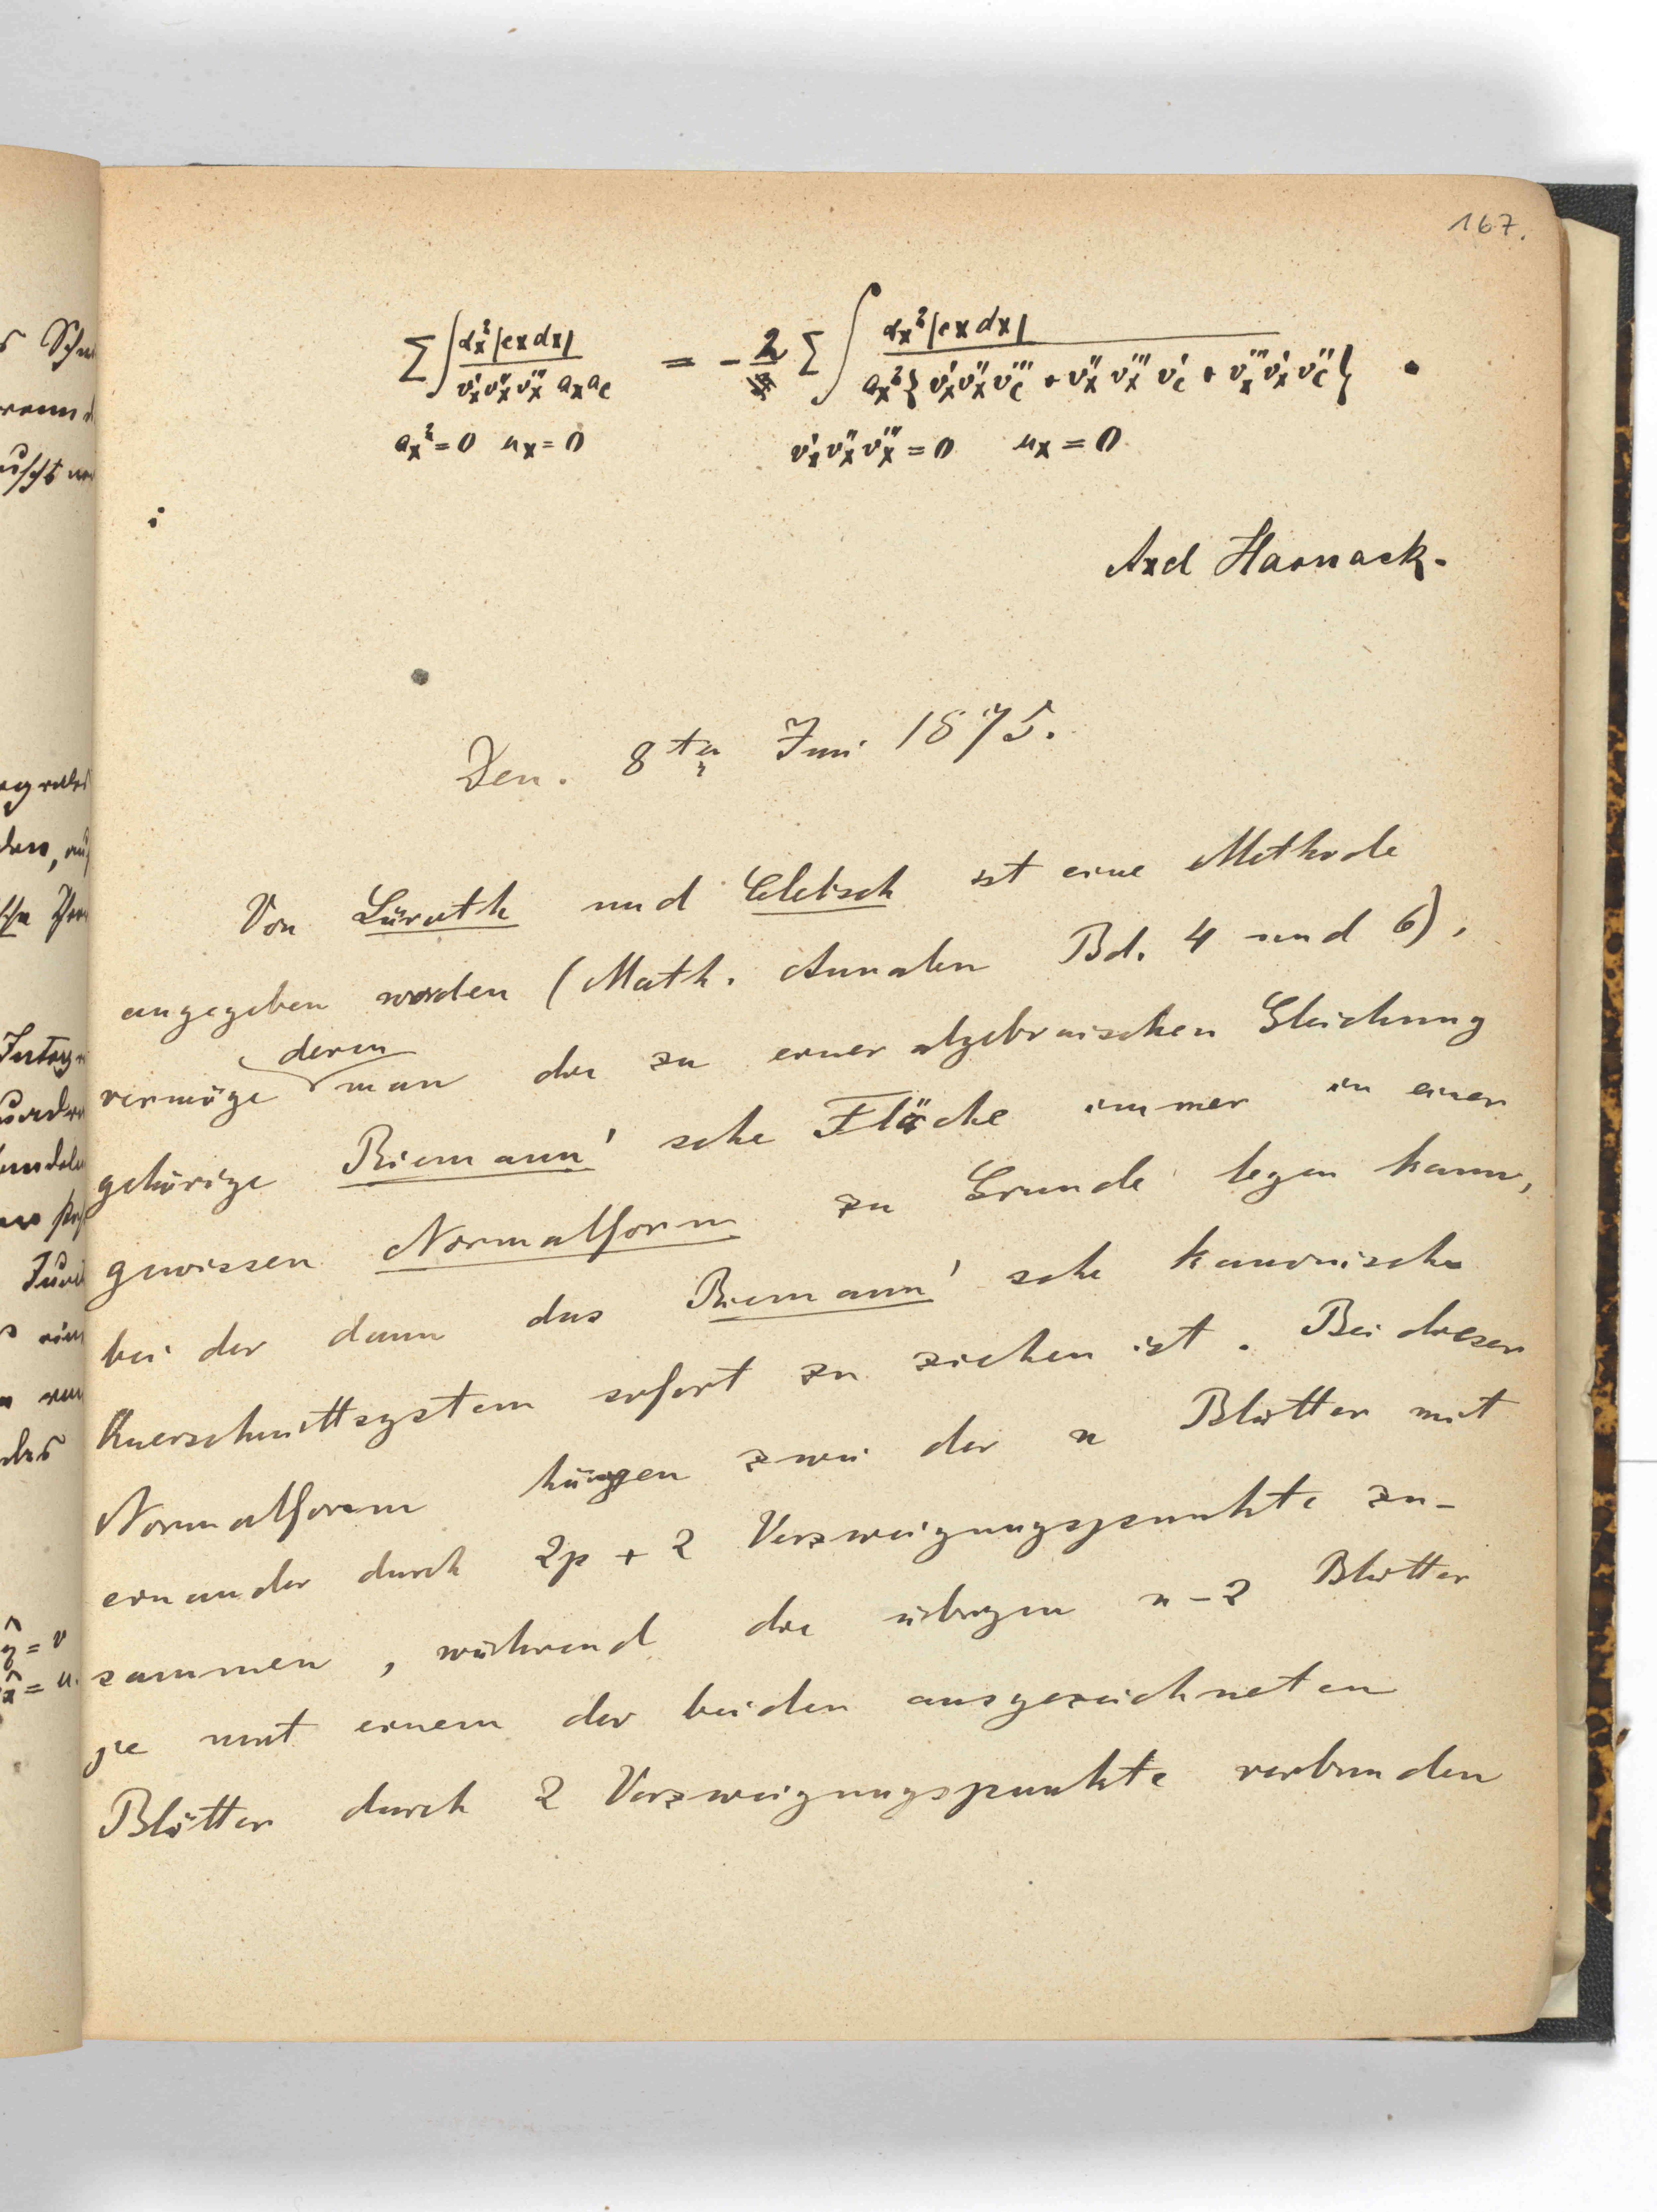 167.
∑ ∫ αx² |cx dx| / v'x v''x v'''x ax ac = - 2 ∑ ∫ αx² |cx dx| / ax² { v'x v''x v'''c + v''x v'''x v'c + v'''x v'x v''c } .
ax² = 0 ux = 0 v'x v''x v'''x = 0 ux = 0
Axel Harnack.
Den. 8ten Juni 1875.
Von Lüroth und Clebsch ist eine Methode
angegeben worden (Math. Annalen Bd. 4 und 6),
vermöge deren man die zu einer algebraischen Gleichung
gehörige Riemann'sche Fläche immer in einer
gewissen Normalform zu Grunde legen kann,
bei der dann das Riemann'sche kanonische
Querschnittsystem sofort zu ziehen ist. Bei dieser
Normalform hängen zwei der n Blätter mit
einander durch 2p + 2 Verzweigungspunkte zu-
sammen, während die übrigen n - 2 Blätter
je mit einem der beiden ausgezeichneten
Blätter durch 2 Verzweigungspunkte verbunden